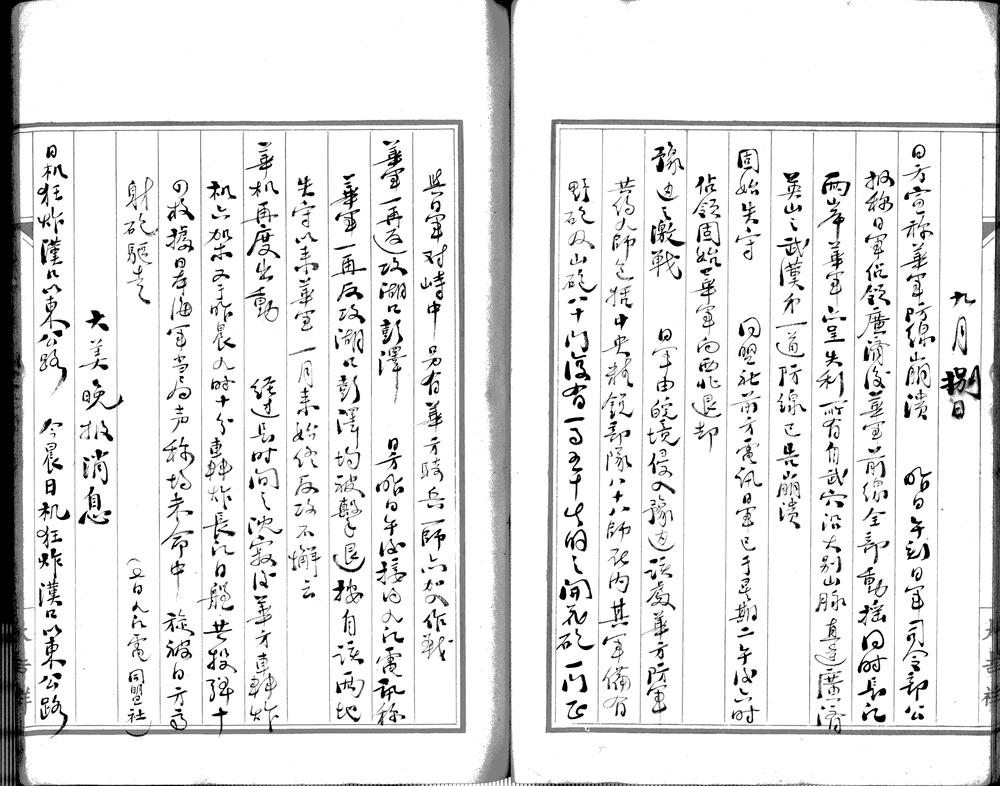 九月捌日
日方宣称華軍防線崩潰 昨日午刻日軍司令部公
報称日軍佔領廣済後華軍前線全部動搖同時長江
兩岸華軍亦呈失利所有自武穴沿大别山脉直達廣済
英山之武漢第一道防線已呈崩潰
固始失守 同盟社前方電訊日軍已于星期二午後六时
佔領固始華軍向西北退却
豫边之激戦 日軍由皖境侵入豫边該處華方防軍
共約九師包括中央精鋭部隊八十八師在内其軍備有
野砲及山砲八十門後有一百五十生的之開花砲一門正
與日軍对峙中 另有華方騎兵一師亦加入作戦
華軍一再反攻湖口彭澤 日方昨日午後接得九江電訊称
華軍一再反攻湖口彭澤均被擊退按自該兩地
失守以来華軍一月来始終反攻不懈云
華机再度出動 経过長时间之沈寂後華方轟炸
机六架又于昨晨九时十分轟炸長江日艦共投弹十
四枚據日本海軍当局声称均未命中 旋被日方高
射砲驅走 （五日九江電 同盟社）
大美晚报消息
日机狂炸漢口以東公路 今晨日机狂炸漢口以東公路